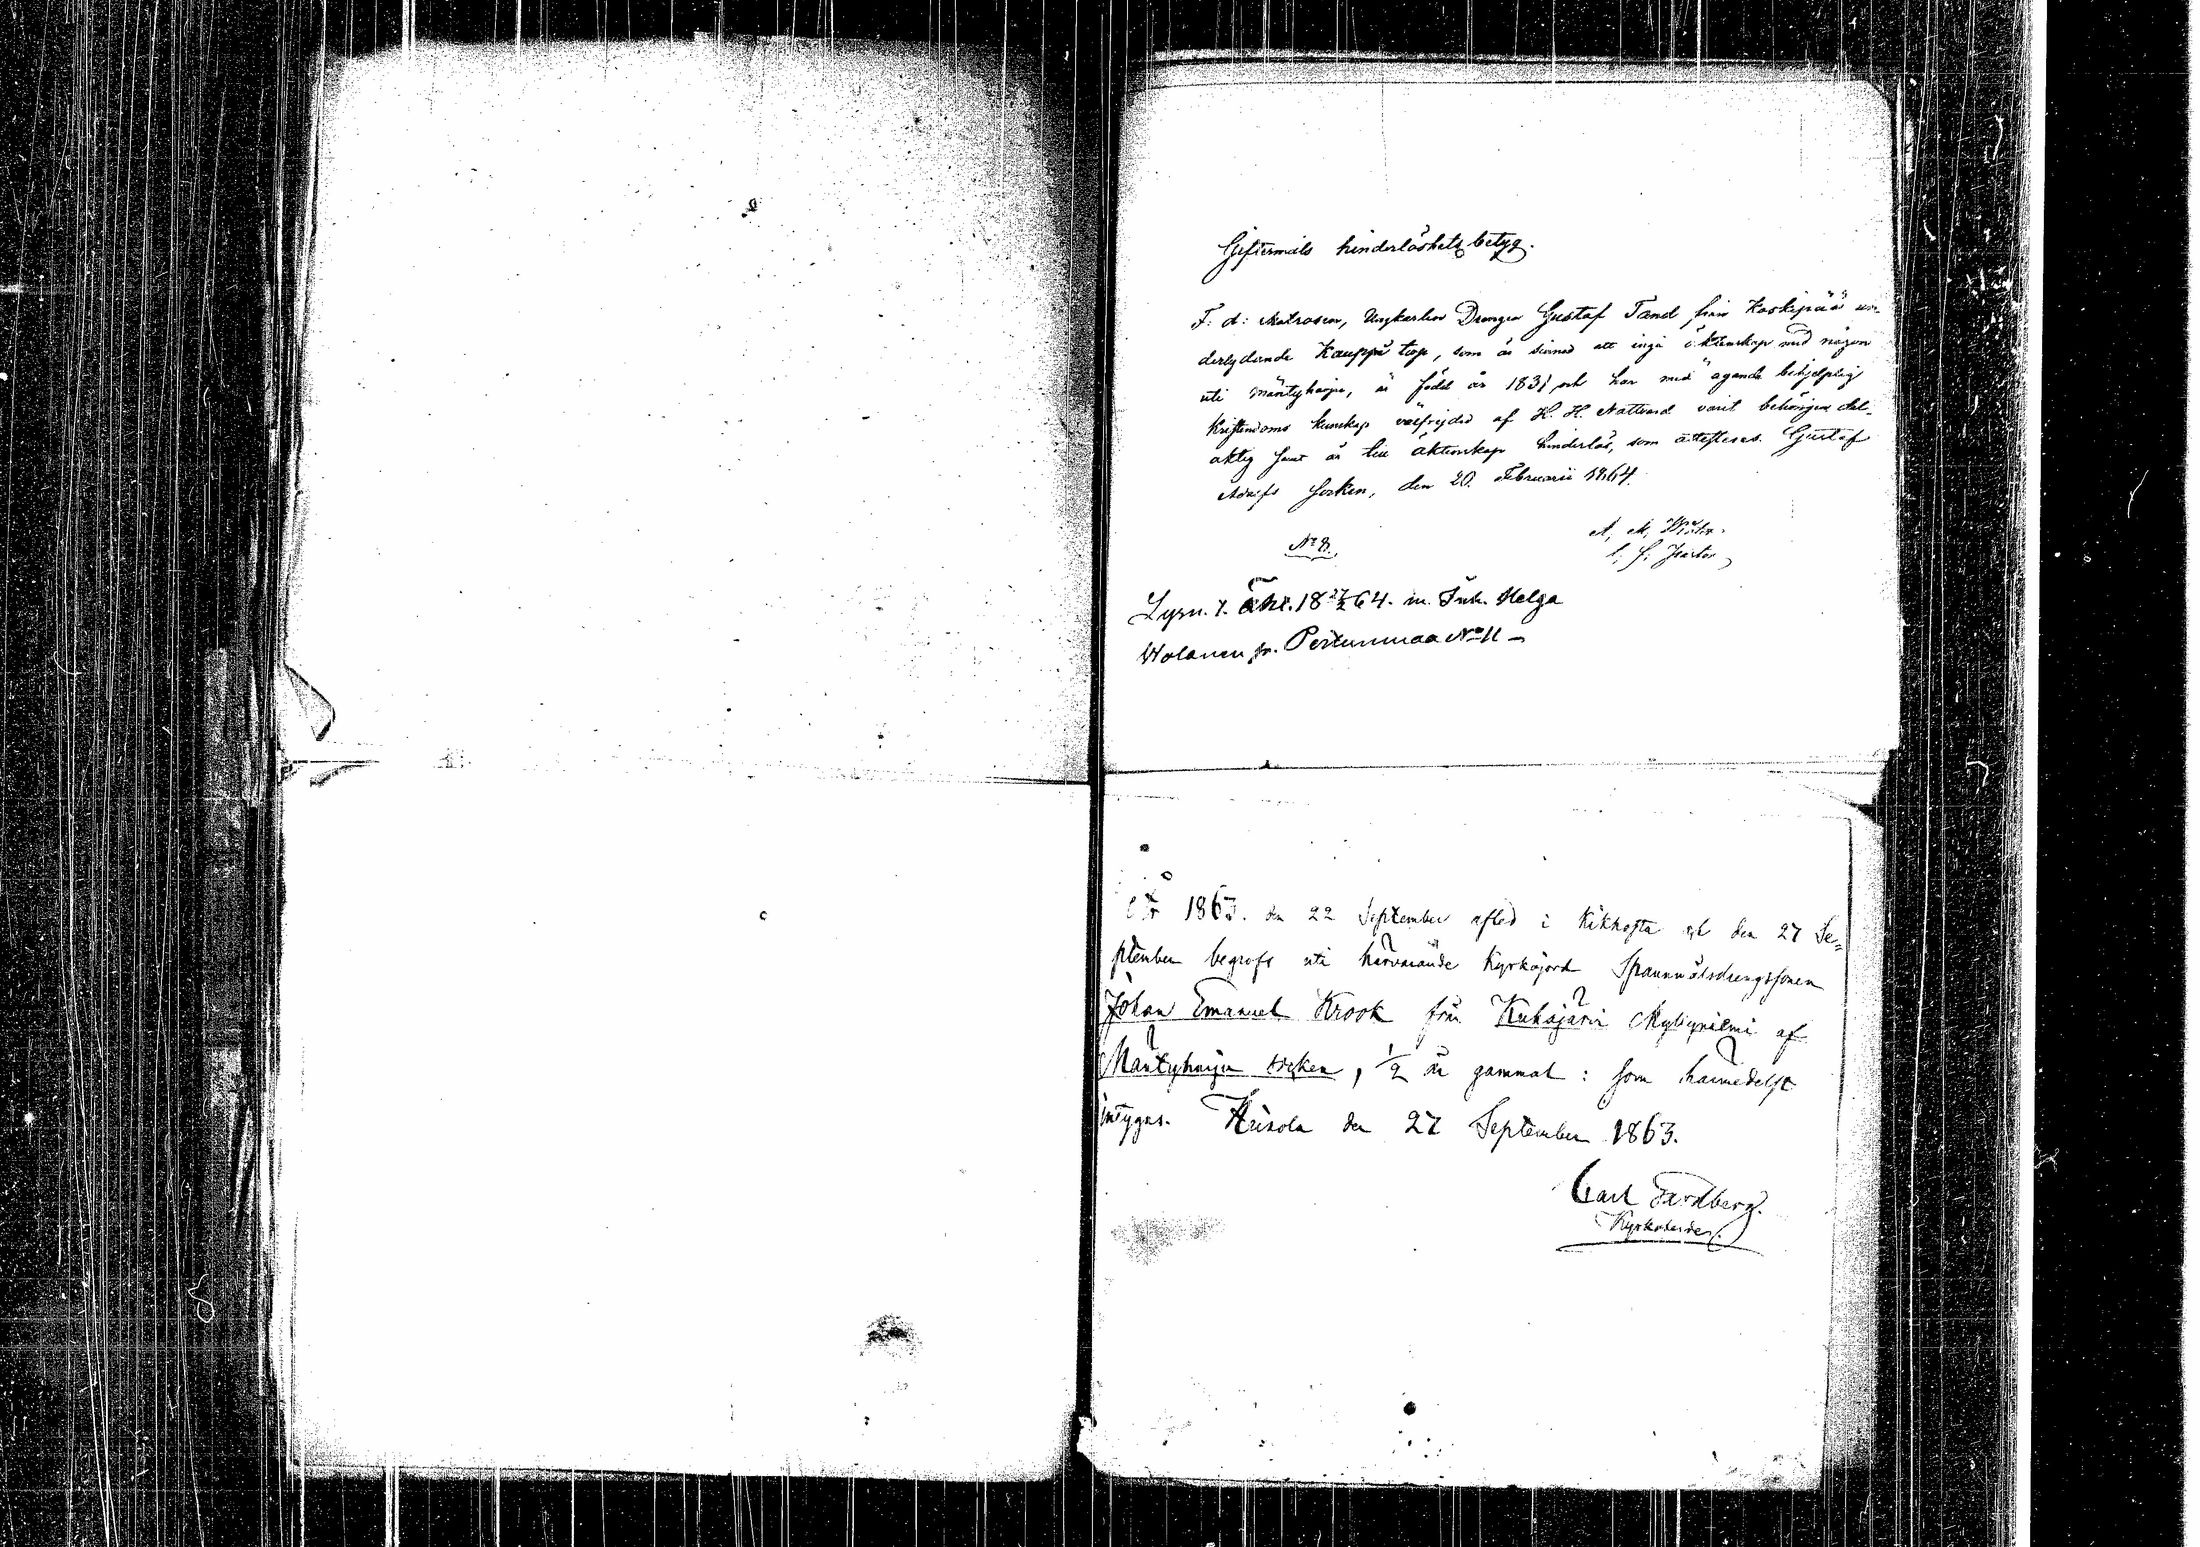 Giftermåls hinderlöshets betyg.
F: d: Matrosen, Ungkarlen Drengen Gustaf Tand från Koskipää un-
derlydande Kauppi torp, som är sinnad att ingå äktenskap med någon
uti Mäntyharju, är född år 1831, och har med ägande behjelplig
kristendoms kunskap välfrejdad af H. H. Nattvard varit behörigen del-
aktig samt är till äktenskap hinderlös, som attesteras. Gustaf
Adolfs Socken, den 20 Februarii 1864.
A, M,
Nº 8.
Lysn. t. Äkt. 18 27/2 64. m. Ink. Helga
Wolanen fr. Pertunmaa Nº 11 –
År 1863. den 22 September afled i Kikhosta och den 27 Se-
ptember begrofs uti härvarande Kyrkojord Spannmålsdrengssonen
Johan Emanuel Krook från Kuhajärvi af
Mäntyharju socken, 1/2 år gammal: som härmedelst
intygas. Hirola den 27 September 1863.
Carl